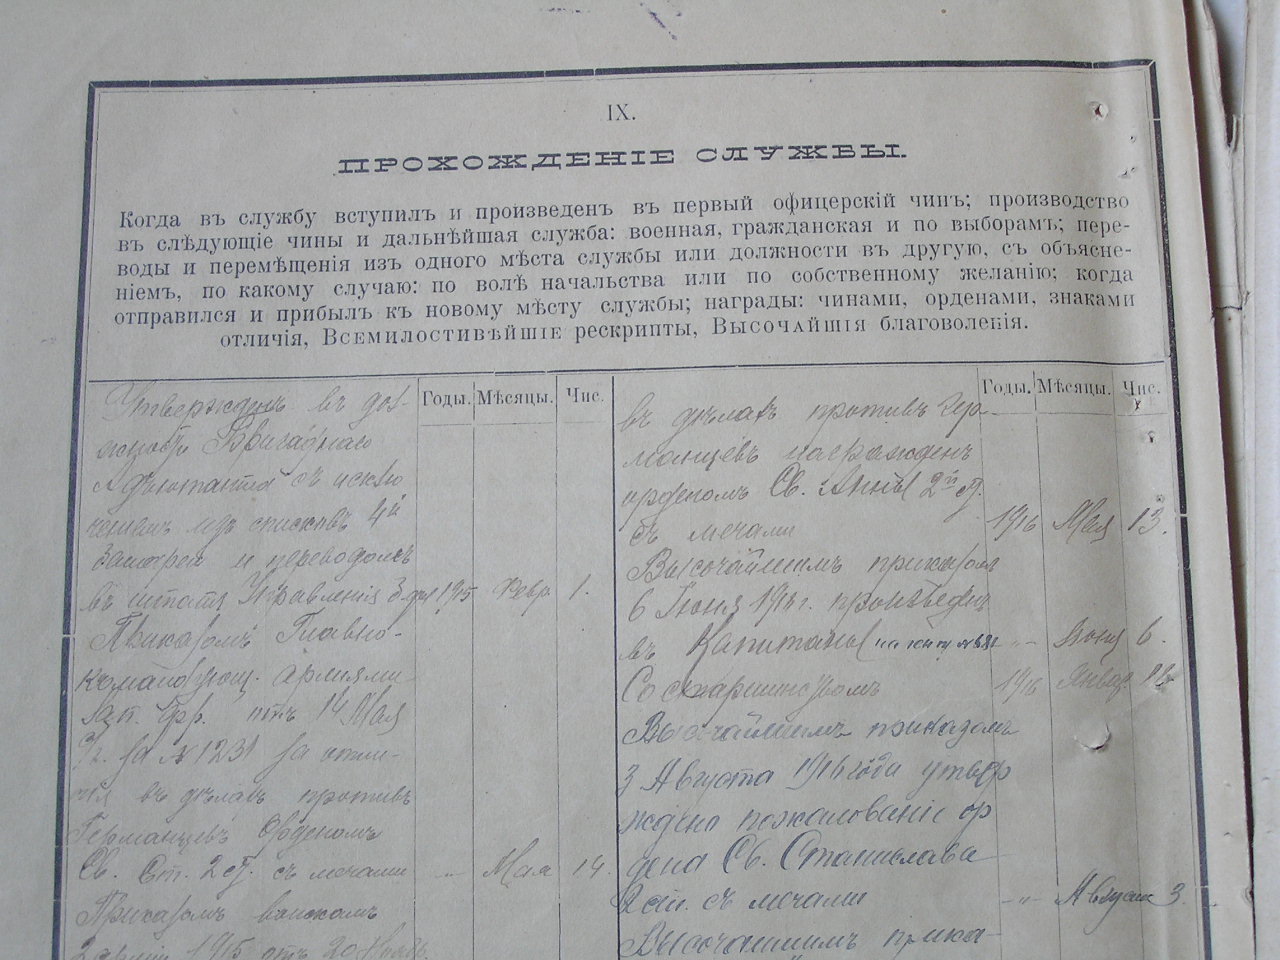 IX.
ПРОХОЖДЕНІЕ СЛУЖБЫ.
Когда въ службу вступилъ и произведенъ въ первый офицерскій чинъ; производство
въ слѣдующіе чины и дальнѣйшая служба: военная, гражданская и по выборамъ; пере-
воды и перемѣщенія изъ одного мѣста службы или должности въ другую, съ объясне-
ніемъ, по какому случаю: по волѣ начальства или по собственному желанію; когда
отправился и прибылъ къ новому мѣсту службы; награды: чинами, орденами, знаками
отличія, Всемилостивѣйшіе рескрипты, Высочайшія благоволенія.
Годы. Мѣсяцы. Чис.
Утвержденъ въ дол-
жности Бригаднаго
Адъютанта съ исклю
ченіемъ изъ списковъ 4й
батареи и переводомъ
въ штатъ Управленія 1915 Февр. 1.
Приказомъ Главно-
командующ. арміями
Зап. фр. отъ 14 Мая
за № 1231 за отли-
чія въ дѣлахъ противъ
Германцевъ Орденомъ
Св. Ст. 2 ст. съ мечами -„- Мая 14.
Приказомъ войскамъ
2 арміи 1915 отъ 20 Ноябр.
Годы. Мѣсяцы. Чис.
въ дѣлахъ противъ Гер-
манцевъ награжденъ
орденомъ Св. Анны 2й ст.
съ мечами 1916 Мая 13.
Высочайшимъ приказомъ
6 Іюня 1916 г. произведенъ
въ Капитаны -„- Іюня 6.
Со старшинствомъ 1916 Январ.
Высочайшимъ приказомъ
3 Августа 1916 года утвер
ждено пожалованіе ор
дена Св. Станислава
2 ст. съ мечами -„- Августа 3.
Высочайшимъ прика-